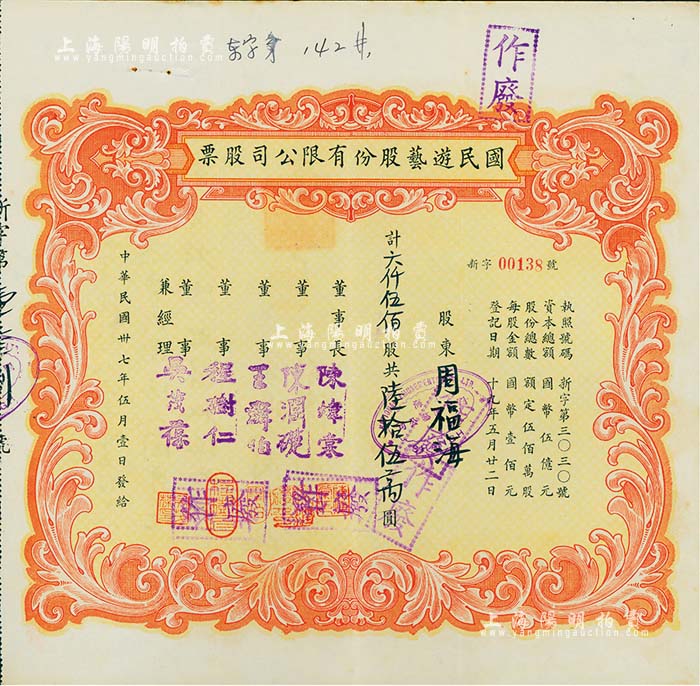 上海陽明拍賣
www.yangmingauction.com
142
作廢
國民遊藝股份有限公司股票
新字 00138 號
執照號碼 新字第三〇三〇號
資本總額 國幣伍億元
股份總數 額定伍佰萬股
每股金額 國幣壹佰元
登記日期 十九年五月廿二日
股東 周福海
計六仟伍佰股共陸拾伍萬圓
董事長 陳煒棠
董事 陳潤硯
董事 王舜伯
董事 程樹仁
董事兼經理 吳茂蓀
中華民國卅七年伍月壹日發給
作廢
作廢
作廢
新字第
號
上海陽明拍賣
www.yangmingauction.com
上海陽明拍賣
www.yangmingauction.com